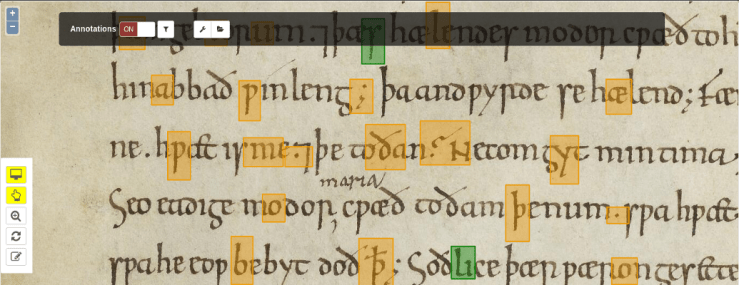 Annotations ON
þæs hælendes modor cwæð to hi
hi nabbað win leng; þa andwyrde se hælend; Fæm
ne. hwæt is me 7 þe to ðan? Ne com gyt min tima,
maria
Seo eadige modor, cwæð to ðam þenum. swa hwæt
swa he eow bebyt doð ꝥ; Soðlice þær wæron gesette